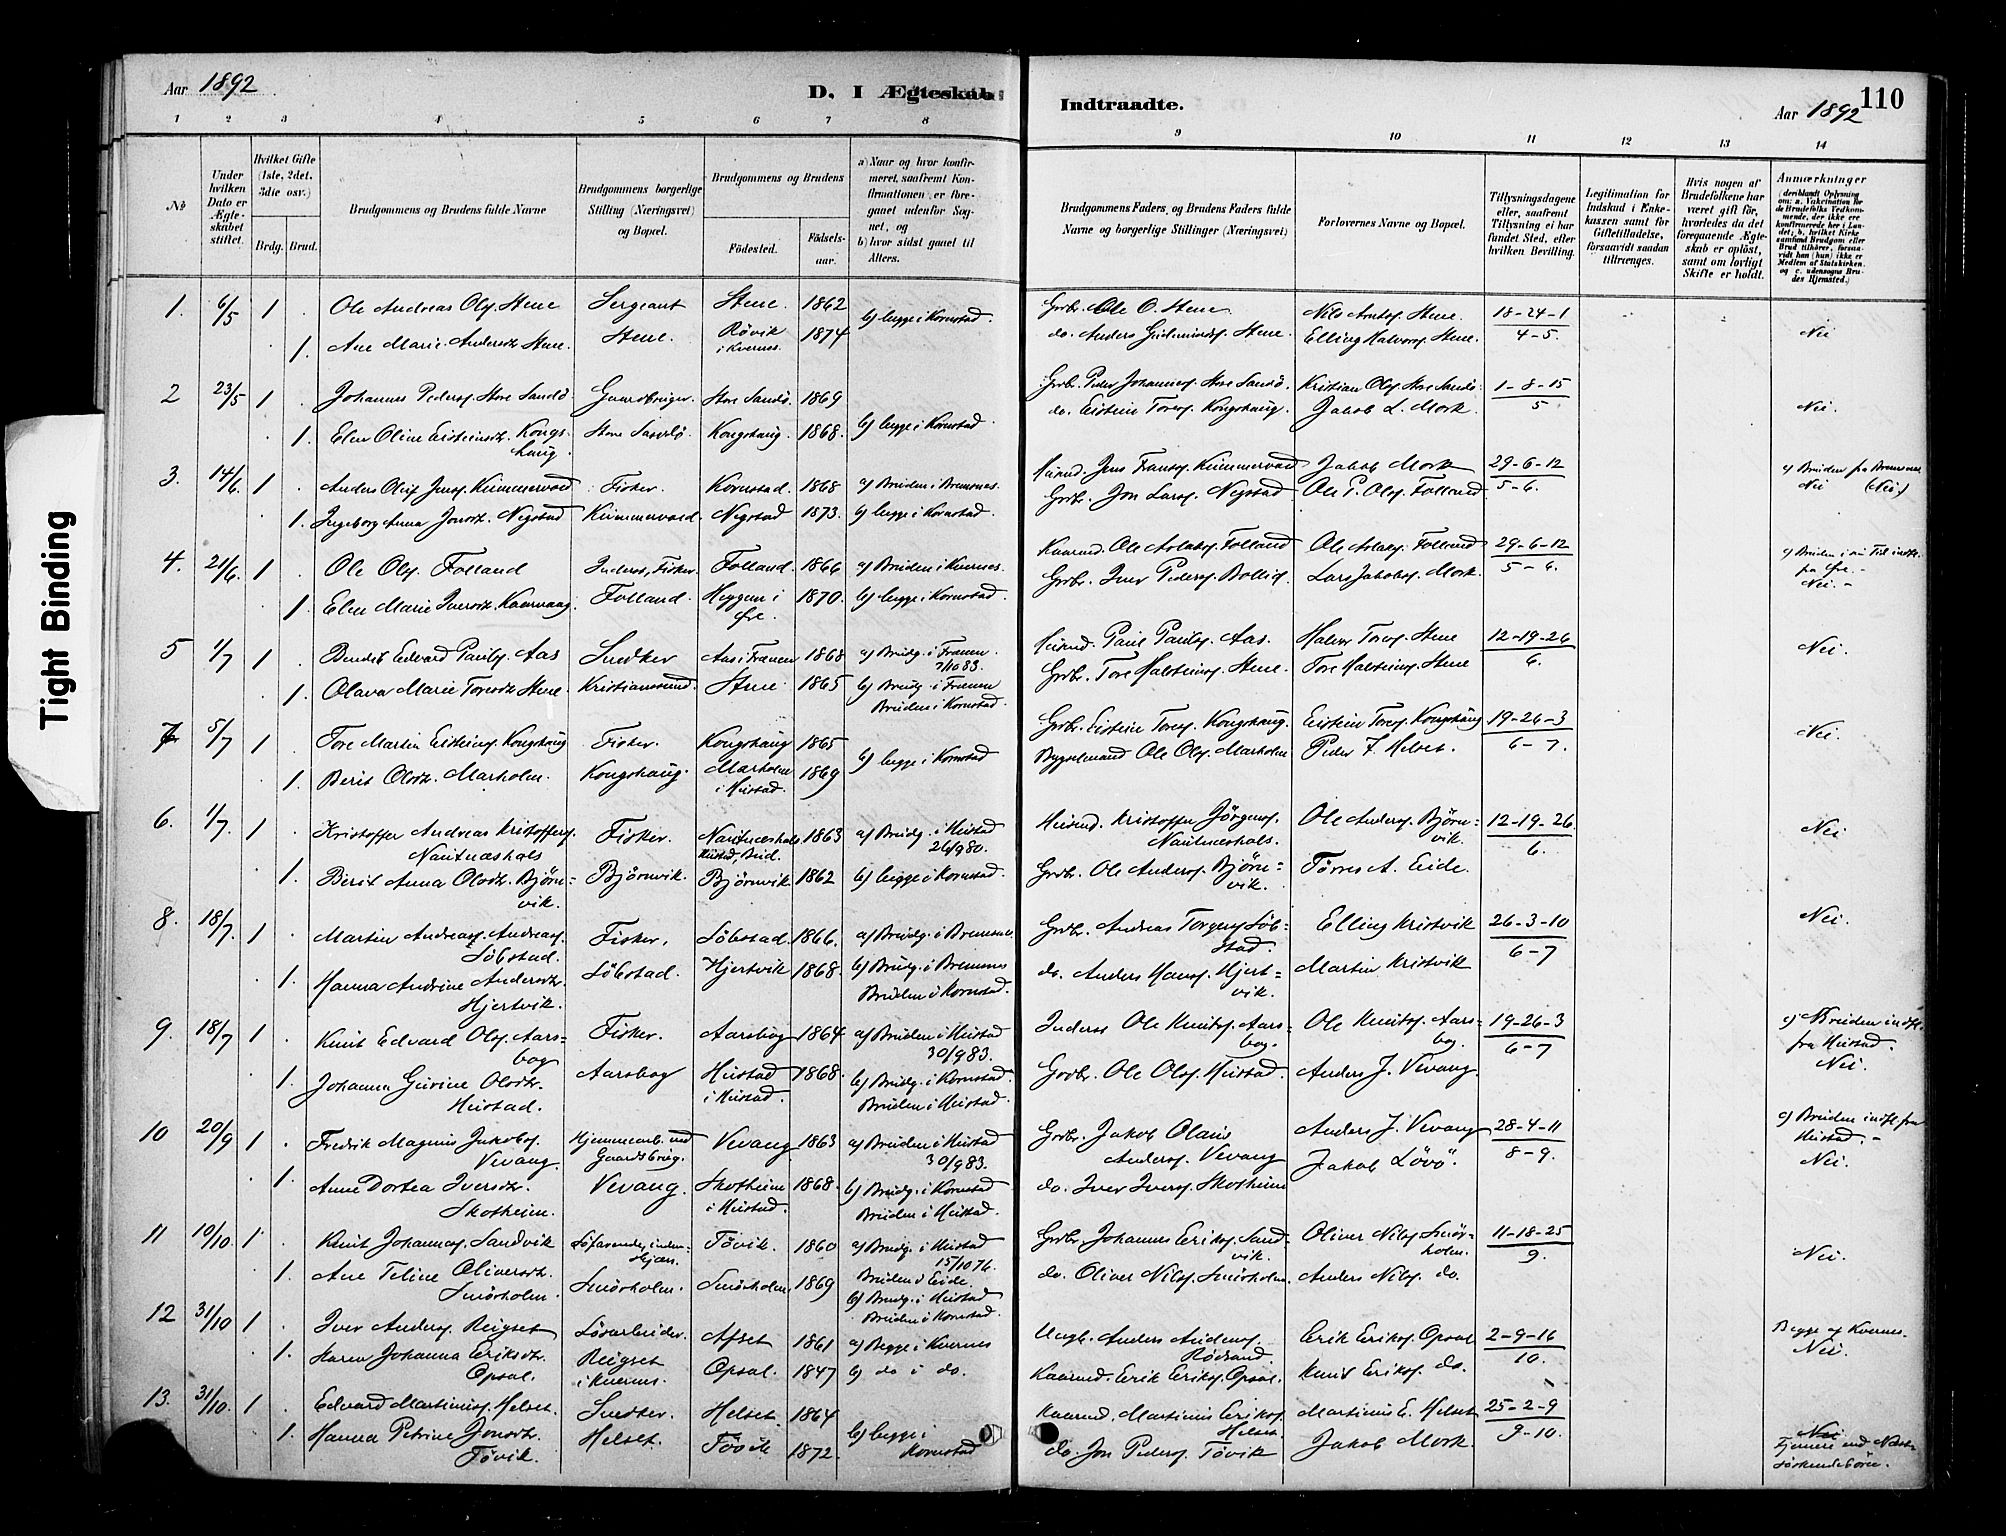 Tight Binding
Aar 1892
D. I Ægteskab
Indtraadte.
Aar 1892
110
1 2 3 4 5 6 7 8 9 10 11 12 13 14
No
Under hvilken Dato er Ægteskabet stiftet.
Hvilket Gifte (1ste, 2det, 3die osv.)
Brdg. Brud.
Brudgommens og Brudens fulde Navne
Brudgommens borgerlige Stilling (Næringsvei) og Bopæl.
Brudgommens og Brudens
Fødested. Fødselsaar.
a) Naar og hvor konfirmeret, saafremt Konfirmationen er foregaaet udenfor Sognet, og
b) hvor sidst gaaet til Alters.
Brudgommens Faders og Brudens Faders fulde Navne og borgerlige Stillinger (Næringsvei)
Forlovernes Navne og Bopæl.
Tillysningsdagene eller, saafremt Tillysning ei har fundet Sted, efter hvilken Bevilling.
Legitimation for Indskud i Enkekassen samt for Giftetilladelse, forsaavidt saadan tiltrænges.
Hvis nogen af Brudefolkene har været gift før, hvorledes da det foregaaende Ægteskab er opløst, samt om lovligt Skifte er holdt.
Anmærkninger
(deriblandt Oplysning om: a. Vakcination for de Brudefolks Vedkommende, der ikke ere konfirmerede her i Landet; b. hvilket Kirkesamfund Brudgom eller Brud tilhører, forsaavidt han (hun) ikke er Medlem af Statskirken, og c. udensogns Brudes Hjemsted.)
1. 6/5 1 . Ole Andreas Ols. Stene Sergeant Stene. 1862 b) begge i Kornstad. Grdbr. Ole O. Stene Nils Arntsf. Stene. 18-24-1
. . 1. Ane Marie Andersdtr. Stene. Stene. Røvik i Kvernes. 1874 do. Anders Gudmundsf. Stene. Elling Halvorsf. Stene. 4-5. Nei
2 23/5 1 . Johannes Pedersf. Store Sandö Gaardbruger. Store Sandö. 1869 b) begge i Kornstad Grdbr. Peder Johannesf. Store Sandö. Kristian Olsf. Store Sandö. 1-8-15
. 1. Elen Oline Eisteinsdtr. Kongshaug. Store Sandö Kongshaug. 1868. do. Eistein Toresf. Kongshaug. Jakob L. Mork. 5 Nei.
3. 14/6. 1 . Anders Oluf Jensf. Kummervold Fisker. Kornstad. 1868 a) Bruden i Bremsnes. Husmd. Jens Fransf. Kummervold Jakob Mork 29-6-12 c) Bruden fra Bremsnes
. 1. Ingeborg Anna Jonsdtr. Negstad Kummervold. Negstad 1873. b) begge i Kornstad. Grdbr. Jon Larsf. Negstad Ole P. Olsf. Folland 5-6. Nei (Nei)
4. 21/6. 1 . Ole Olsf. Folland Inderst, Fisker. Folland. 1866 a) Bruden i Kvernes. Kaarmd. Ole Aslaksf. Folland Ole Aslaksf. Folland 29-6-12
. 1. Elen Marie Iversdtr. Kaarvaag. Folland. Heggem i Øre. 1870. b) begge i Kornstad. Grdbr. Iver Pedersf. Bollid. Lars Jakobsf. Mork. 5-6. fra Øre. Nei.
5 1/7 1 . Bendik Edvard Paulsf. Aas Snedker Aas i Frænen 1868 a) Brudg. i Frænen 7/10 83. Husmd. Paul Paulsf. Aas. Halvor Toresf. Stene 12-19-26 Nei.
. 1. Olava Marie Toresdtr. Stene. Kristiansund. Stene 1865 b) Brudg. i Frænen Bruden i Kornstad. Grdbr. Tore Halsteinsf. Stene. Tore Halsteinsf. Stene 6.
7 5/7 1 . Tore Martin Eisteinsf. Kongshaug Fisker. Kongshaug 1865 b) begge i Kornstad Grdbr. Eistein Toresf. Kongshaug. Eistein Toresf. Kongshaug 19-26-3 Nei.
. 1. Berit Olsdtr. Marholm. Kongshaug. Marholm i Hustad. 1869 Bygselmand Ole Olsf. Marholm Peder J. Helset. 6-7.
6. 1/7. 1 . Kristoffer Andreas Kristoffersf. Nautneshals Fisker. Nautneshals Hustad, Bud. 1863 a) Brudg. i Hustad 26/9 80. Husmd. Kristoffer Jörgensf. Nautneshals. Ole Andersf. Björnvik. 12-19-26 Nei
. 1. Berit Anna Olsdtr. Björnvik. Björnvik. Björnvik 1862 b) begge i Kornstad. Grdbr. Ole Andersf. Björnvik. Törres A. Eide. 6.
8. 18/7. 1 . Martin Andreasf. Andreasf. Löbstad. Fisker. Löbstad. 1866. a) Brudg. i Bremsnes. Grdbr. Andreas Torgersf. Löbstad. Elling Kristvik 26-3-10 Nei.
. 1. Hanna Andrine Andersdtr. Hjertvik. Löbstad. Hjertvik 1868. b) Brudg. i Bremsnes Bruden i Kornstad. do. Anders Hansf. Hjertvik. Martin Kristvik 6-7
9. 18/7 1 . Knut Edvard Olsf. Aarsbog Fisker. Aarsbog 1864 a) Bruden i Hustad 30/9 83. Inderst Ole Knutsf. Aarsbog. Ole Knutsf. Aarsbog. 19-26-3 c) Bruden indfl. fra Hustad.
. 1. Johanna Gurine Olsdtr. Hustad. Aarsbog Hustad i Hustad. 1868. b) Brudg. i Kornstad. Bruden i Hustad. Grdbr. Ole Olsf. Hustad. Anders J. Vevang. 6-7 Nei.
10 20/9 1 . Fredrik Magnus Jakobsf. Vevang. Hjemmearb. ved Gaardsbrug. Vevang 1863 a) Bruden i Hustad 30/9 83. Grdbr. Jakob Olaus Andersf. Vevang Anders J. Vevang 28-4-11 c) Bruden indfl. fra Hustad.
. 1. Anne Dortea Iversdtr. Skotheim. Vevang. Skotheim i Hustad. 1868. b) Brudg. i Kornstad Bruden i Hustad. do. Iver Iversf. Skotheim Jakob Lövö. 8-9. Nei.
11 10/10. 1 . Knut Johannesf. Sandvik Söfarende, Tövik. 1860 a) Brudg. i Hustad 15/10 76. Bruden i Eide. Grdbr. Johannes Eriksf. Sandvik. Oliver Nilsf. Smörholm. 11-18-25 Nei.
. 1. Ane Teline Oliversdtr. Smörholm. Smörholm. Smörholm. 1869 b) Brudg. i Hustad Bruden i Kornstad. do. Oliver Nilsf. Smörholm. Anders Nilsf. do. 9.
12 31/10 1 . Iver Andersf. Reigset Afset 1861 a) Begge i Kvernes Anders Rödsand. Erik Eriksf. Opsal 2-9-16 Begge af Kvernes.
. 1. Karen Johanna Eriksdtr. Opsal. Reigset i Kvernes. Opsal. 1847 b) do i do. Kaarmd. Erik Eriksf. Opsal. Knut Eriksf. do. 10. Nei.
13. 31/10. 1 . Edvard Martinusf. Helset. Snedker. Helset. 1864 b) begge i Kornstad Kaarmd. Martinus Eriksf. Helset. Martinus E. Helset 25-2-9
1. Hanna Petrine Jonsdtr. Tövik. Helset. Tövik 1872. do. Jon Pedersf. Tövik Jakob Mork. 9-10. Nei
Fjernere end Næstsöskendebörn.